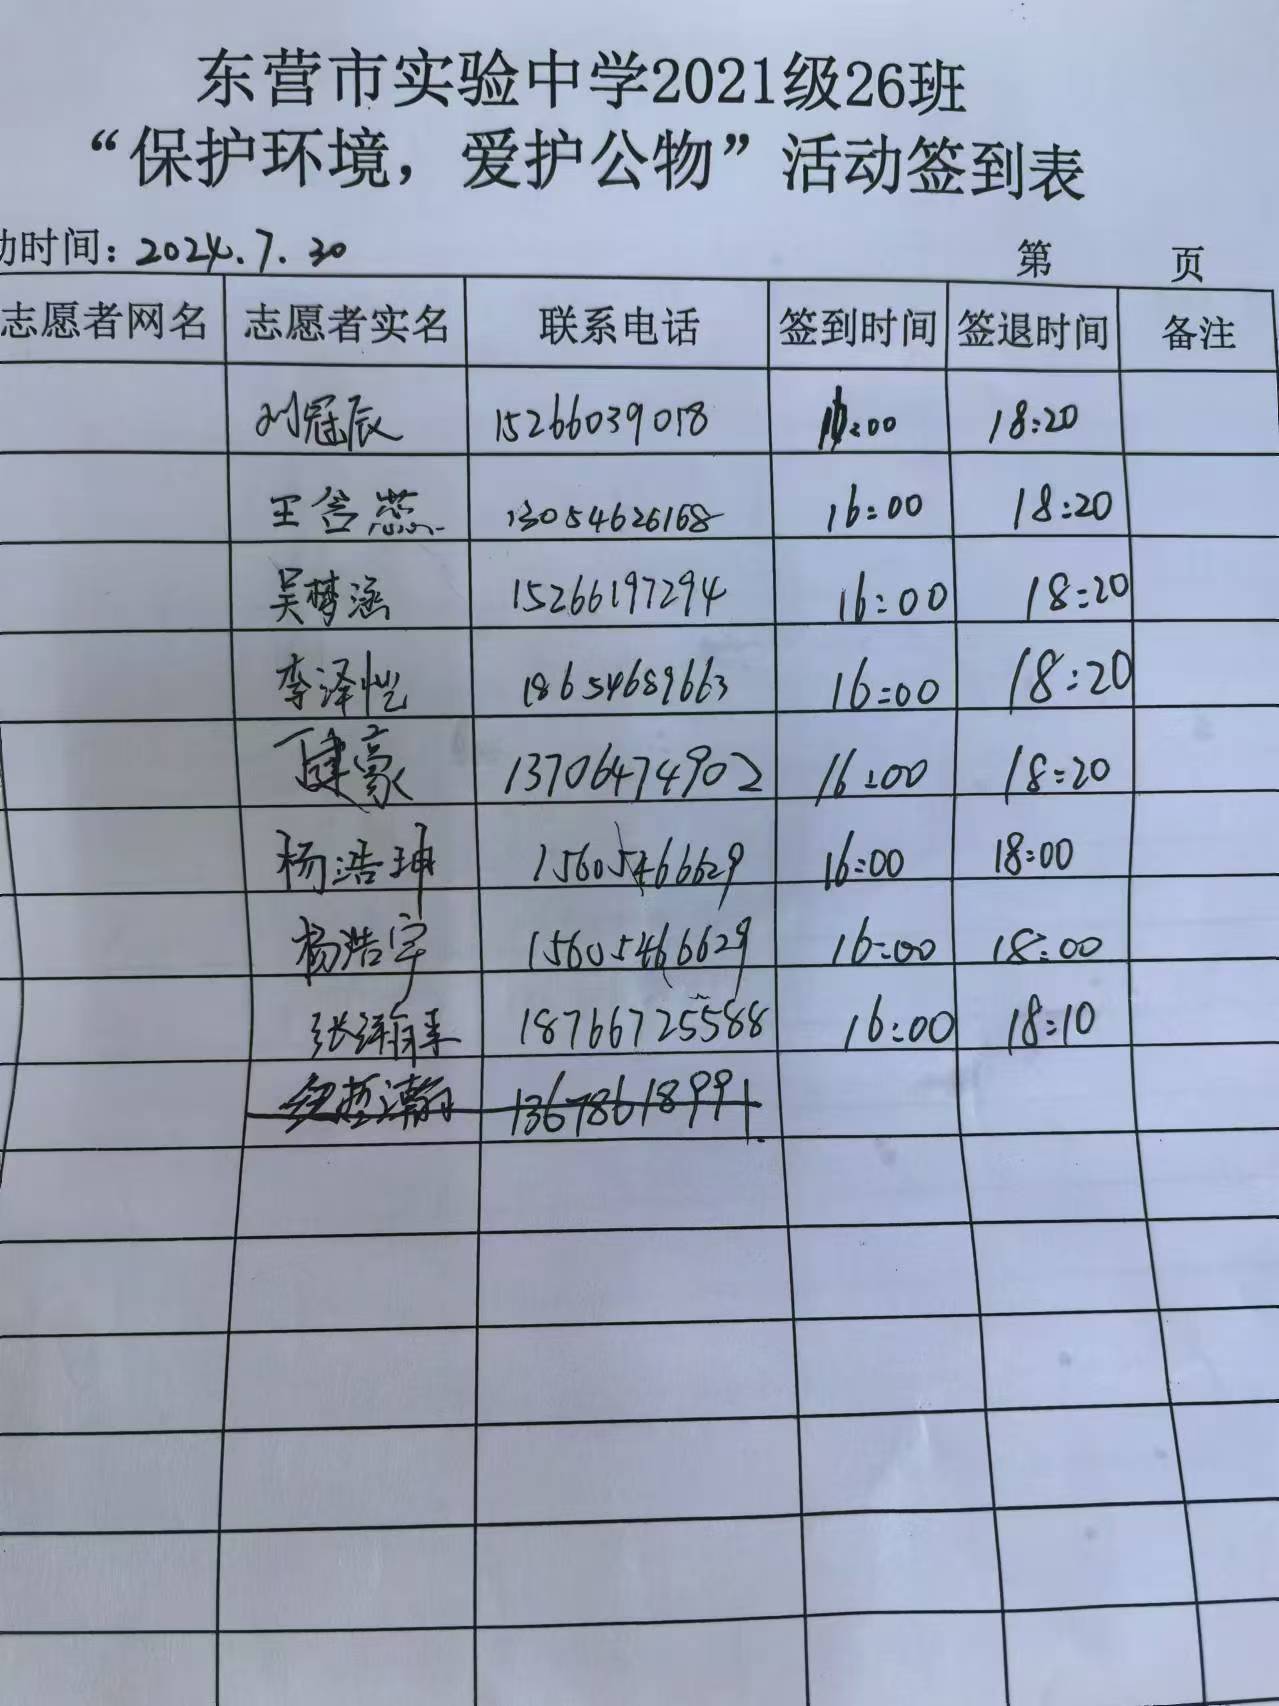 东营市实验中学2021级26班
“保护环境，爱护公物”活动签到表
动时间：2024.7.30 第 页
志愿者网名 志愿者实名 联系电话 签到时间 签退时间 备注
刘冠辰 15266039078 16:00 18:20
王含蕊 13054626168 16:00 18:20
吴梦涵 15266197294 16:00 18:20
李泽恺 18654689663 16:00 18:20
丁建豪 13706474902 16:00 18:20
杨浩坤 15605466629 16:00 18:00
杨浩宇 15605466629 16:00 18:00
张瀚 18766725588 16:00 18:10
哲瀚 13678618991